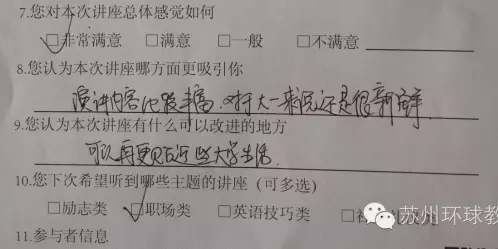 7.您对本次讲座总体感觉如何
☑非常满意 □满意 □一般 □不满意
8.您认为本次讲座哪方面更吸引你
演讲内容比较丰富,对于大一来说还是很新鲜
9.您认为本次讲座有什么可以改进的地方
可以再更贴近些大学生活.
10.您下次希望听到哪些主题的讲座(可多选)
□励志类 ☑职场类 □英语技巧类
苏州环球教
11.参与者信息